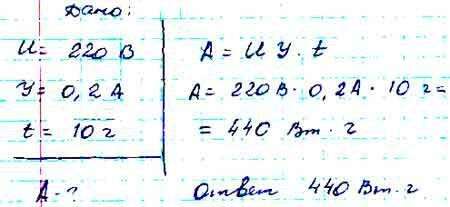 Дано:
U = 220 В
У = 0,2 А
t = 10 г
А - ?
А = U У · t
А = 220 В · 0,2 А · 10 г =
= 440 Вт · г
Ответ 440 Вт · г